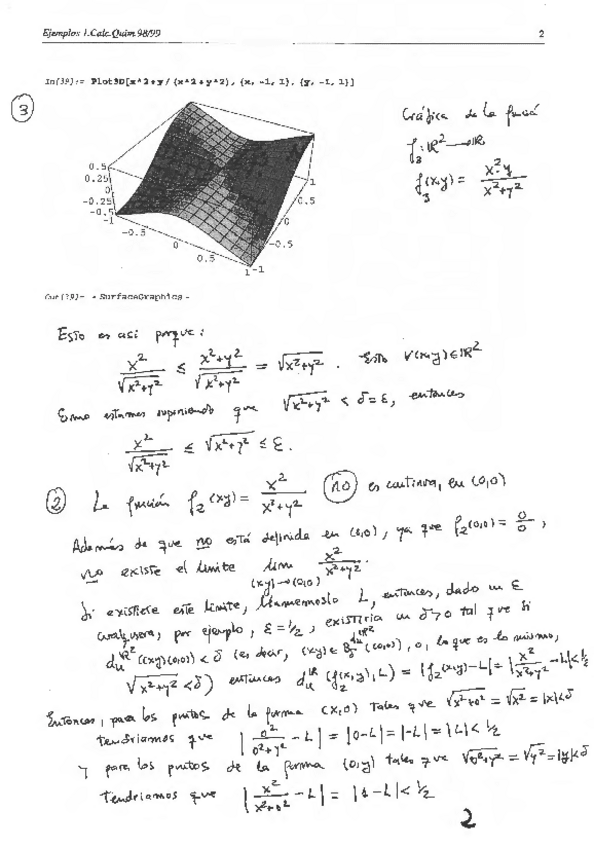 Ejemplos 1.Calc.Quim.98/99 2
In[39]:= Plot3D[x^2*y/(x^2+y^2), {x, -1, 1}, {y, -1, 1}]
③
Gráfica de la función
f₃: ℝ² → ℝ
f₃(x,y) = x²·y / (x²+y²)
0.5
0.25
0
-0.25
-0.5
-1
-0.5
0
0.5
1
-1
-0.5
0
0.5
1
Out[39]= - SurfaceGraphics -
Esto es así porque:
x²/√(x²+y²) ≤ (x²+y²)/√(x²+y²) = √(x²+y²). Esto ∀(x,y)∈ℝ²
Como estamos suponiendo que √(x²+y²) < δ = ε, entonces
x²/√(x²+y²) ≤ √(x²+y²) ≤ ε.
② La función f₂(x,y) = x²/(x²+y²) no es continua, en (0,0)
Además de que no está definida en (0,0), ya que f₂(0,0) = 0/0,
no existe el límite lim (x,y)→(0,0) x²/(x²+y²).
Si existiese este límite, llamémoslo L, entonces, dado un ε
cualquiera, por ejemplo, ε = 1/2, existiría un δ>0 tal que si
d_u^ℝ²((x,y),(0,0)) < δ (es decir, (x,y) ∈ B_δ^ℝ²((0,0)), o, lo que es lo mismo,
√(x²+y²) < δ) entonces d_u^ℝ(f₂(x,y), L) = |f₂(x,y)-L| = |x²/(x²+y²) - L| < 1/2
Entonces, para los puntos de la forma (x,0) tales que √(x²+0²) = √x² = |x| < δ
tendríamos que |0²/(0²+y²) - L| = |0-L| = |-L| = |L| < 1/2
Y para los puntos de la forma (0,y) tales que √(0²+y²) = √y² = |y| < δ
tendríamos que |x²/(x²+0²) - L| = |1-L| < 1/2
2